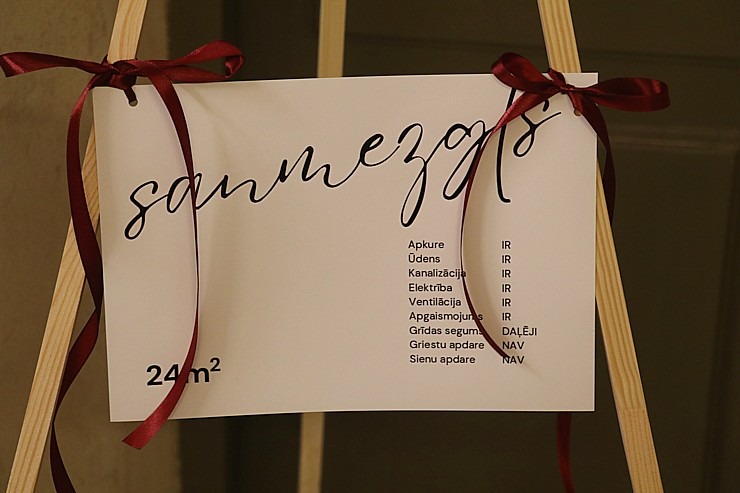 sanmezgls
Apkure IR
Ūdens IR
Kanalizācija IR
Elektrība IR
Ventilācija IR
Apgaismojums IR
Grīdas segums DAĻĒJI
Griestu apdare NAV
Sienu apdare NAV
24m²